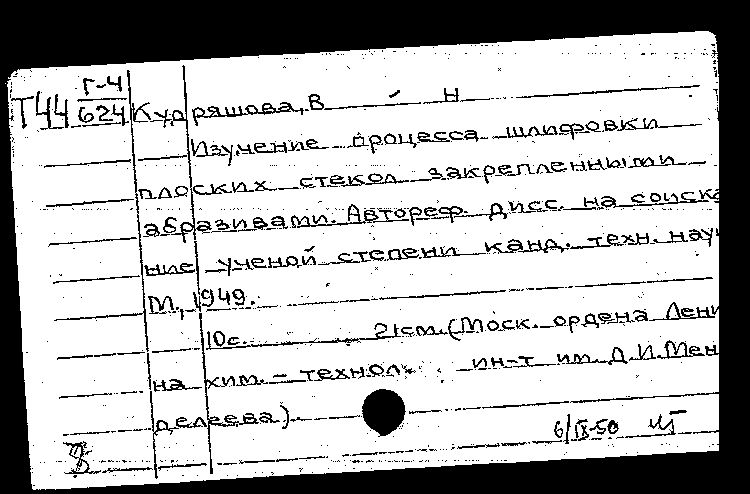 Г-4
Т44 624 Кудряшова, В Н
Изучение процесса шлифовки
плоских стекол закрепленными
абразивами. Автореф. дисс. на соиска
ние ученой степени канд. техн. нау
М., 1949.
10с. 21см. (Моск. ордена Лени
на хим. - технол. ин-т им. Д.И. Мен
делеева).
6/IX-50